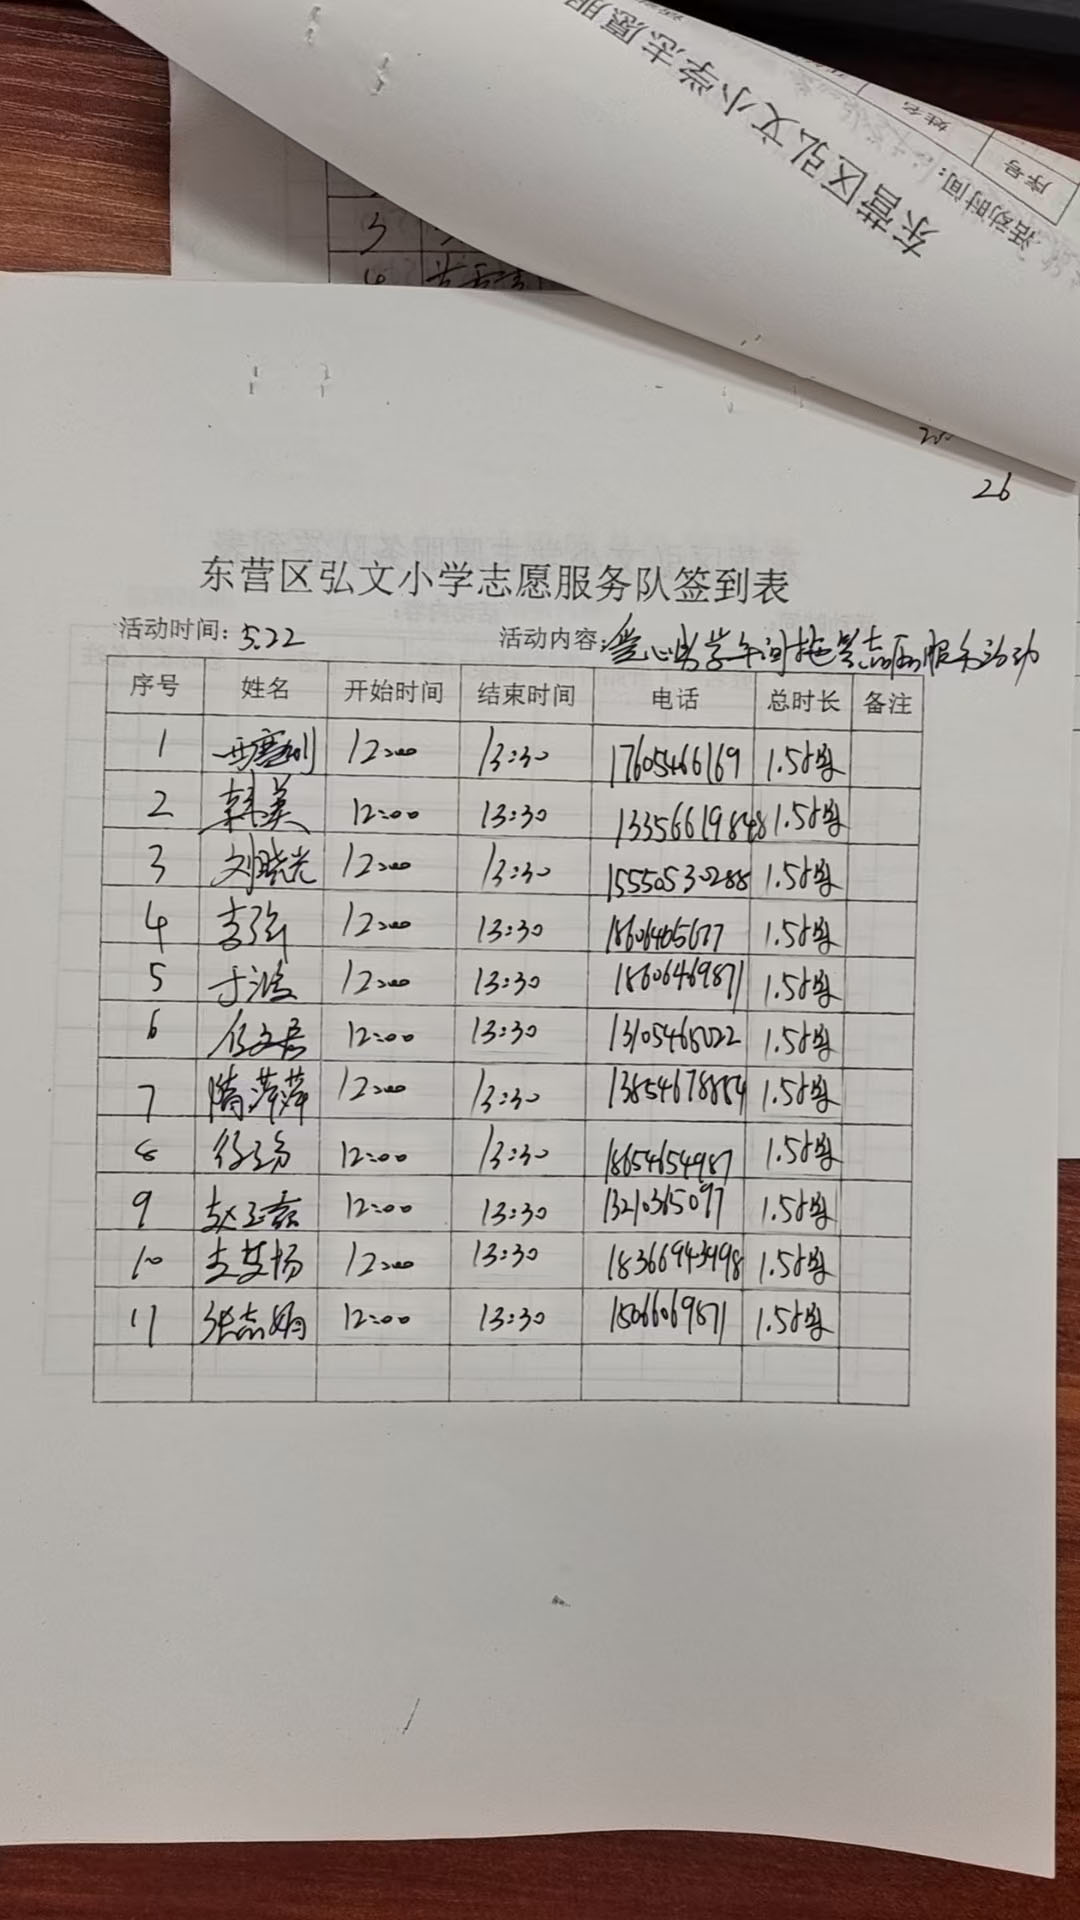 东营区弘文小学志愿服
活动时间：
序号 姓名
3
4
26
东营区弘文小学志愿服务队签到表
活动时间：5.22 活动内容：爱心助学午间托管志愿服务活动
序号 姓名 开始时间 结束时间 电话 总时长 备注
1 12:00 13:30 17605466169 1.5小时
2 韩英 12:00 13:30 13356619848 1.5小时
3 刘晓光 12:00 13:30 15550530288 1.5小时
4 李强 12:00 13:30 1.5小时
5 于波 12:00 13:30 18606469871 1.5小时
6 任文君 12:00 13:30 13105468022 1.5小时
7 隋萍萍 12:00 13:30 13854678884 1.5小时
8 12:00 13:30 18654654987 1.5小时
9 赵玉磊 12:00 13:30 13210365097 1.5小时
10 12:00 13:30 18366943498 1.5小时
11 张志娟 12:00 13:30 15066069871 1.5小时